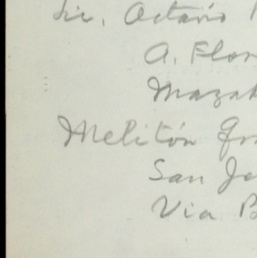 Lic. Octavio
A. Flor
Mazat
Melitón Gr
San Je
Via B